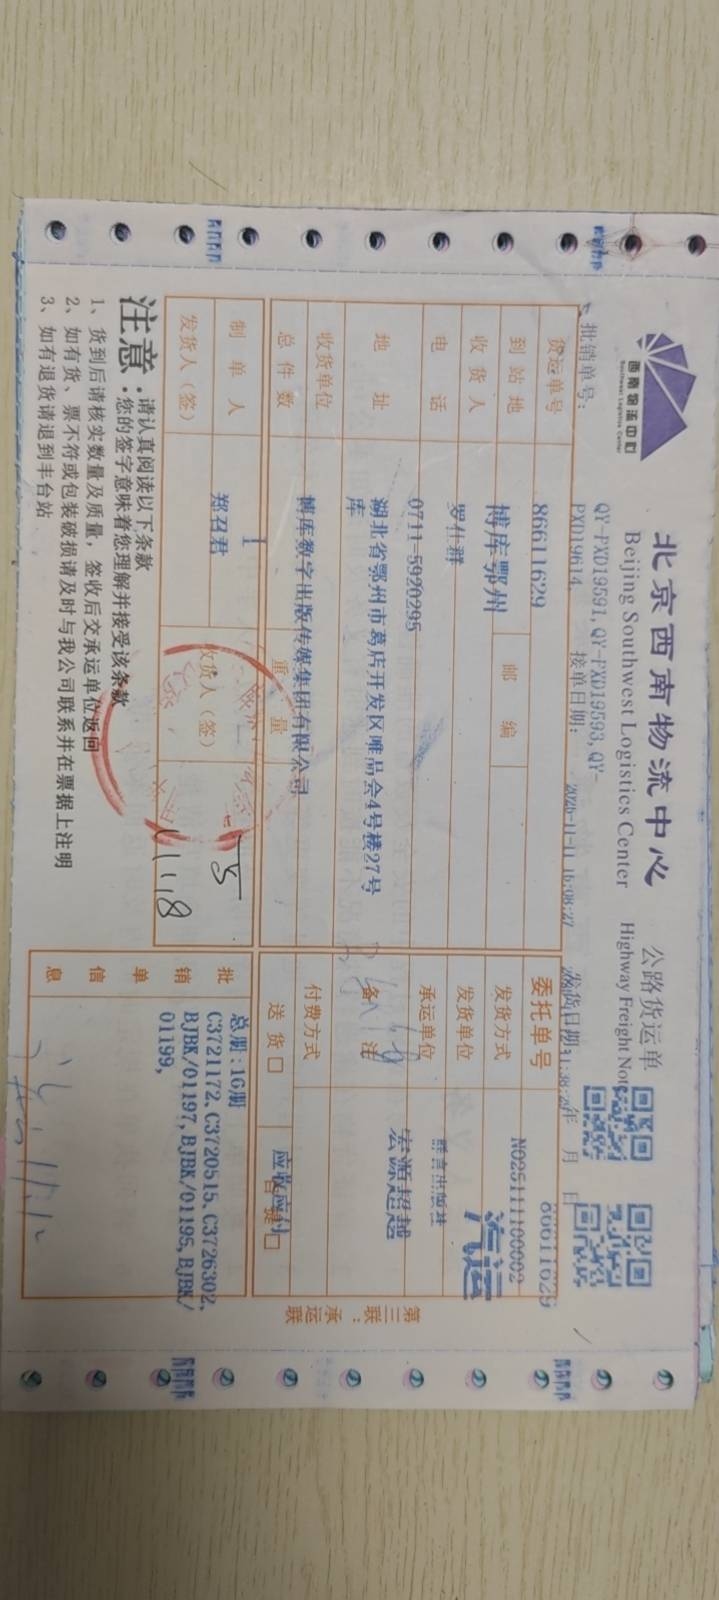 西南物流中心
Southwest Logistics Center
北京西南物流中心
Beijing Southwest Logistics Center
公路货运单
Highway Freight Note
批销单号:
QY-PXD19591,QY-PXD19593,QY-
PXD19614,
接单日期:
2025-11-11 16:08:27
发货日期:
年 月 日
货运单号 86611629
委托单号 NO25111100002
86611629
到站地 博库鄂州 邮编
发货方式 汽运
收货人 罗仕群
发货单位 群言出版社
电话 0711-5920295
承运单位 宏源超越
地址 湖北省鄂州市葛店开发区唯品会4号楼27号
库
备注
收货单位 博库数字出版传媒集团有限公司
付费方式
总件数 1 重量
送货□ 自提□
应收应付
制单人 郑召君
收货人(签)
发货人(签)
批销单信息
总册:16册
C3721172,C3720515,C3726302,
BJBK/01197,BJBK/01195,BJBK/
01199,
第三联:承运联
注意:
请认真阅读以下条款
您的签字意味着您理解并接受该条款
1、货到后请核实数量及质量,签收后交承运单位返回
2、如有货、票不符或包装破损请及时与我公司联系并在票据上注明
3、如有退货请退到丰台站